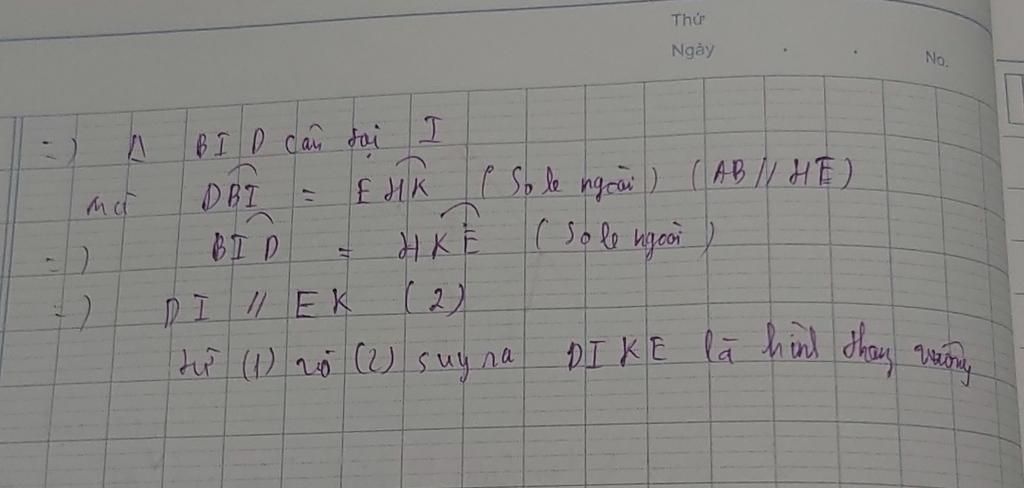 Thứ
Ngày . . No.
=) Δ BID cân tại I
mà DBI = EHK (So le ngoài) (AB // HE)
=) BID = HKE (So le ngoài)
=) DI // EK (2)
từ (1) và (2) suy ra DIKE là hình thang vuông